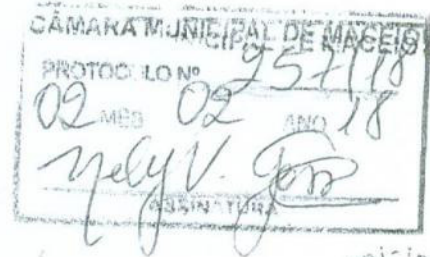 CÂMARA MUNICIPAL DE MACEIÓ
PROTOCOLO Nº 257/18
02 MÊS 02 ANO 18
Nely V.
ASSINATURA